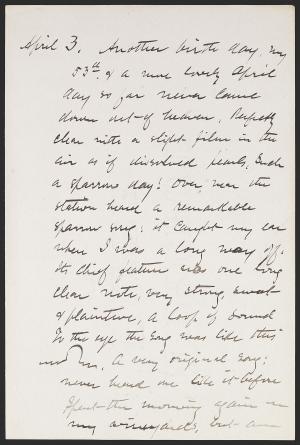 April 3. Another birth day, my
53rd. & a more lovely April
day so far never came
down out of heaven. Perfectly
clear with a slight film in the
air as if dissolved pearls. Such
a sparrow day! Over near the
station heard a remarkable
sparrow song; it caught my ear
when I was a long way off.
Its chief feature was one long
clear note, very strong, sweet
& plaintive, a loop of sound
To the eye the song was like this
A very original song;
never heard one like it before
Spent the morning again in
my vineyards, but am